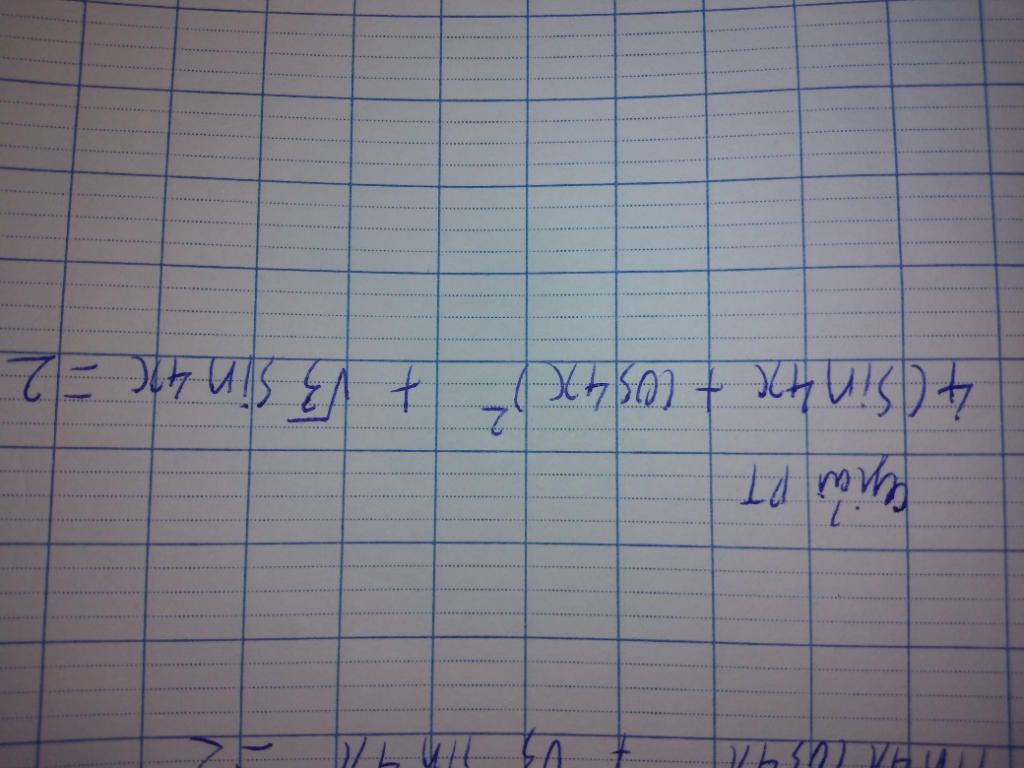 Giải PT
4(sin4x + cos4x)² + √3 sin4x = 2